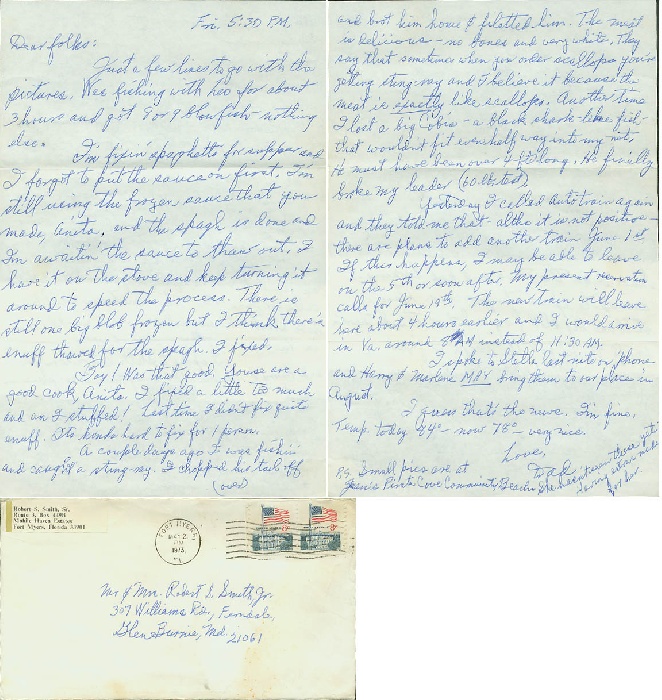 Fri. 5:30 P.M.
Dear folks:
Just a few lines to go with the
pictures. Was fishing with Leo for about
3 hours and got 8 or 9 blowfish - nothing
else.
I'm fixin' spaghetti for supper and
I forgot to put the sauce on first. I'm
still using the frozen sauce that you
made, Anita, and the spagh. is done and
I'm awaitin' the sauce to thaw out. I
have it on the stove and keep turning it
around to speed the process. There is
still one big blob frozen but I think there's
enuff thawed for the spagh. I fixed.
Boy! Was that good. Youse are a
good cook, Anita. I fixed a little too much
and am I stuffed! Last time I didn't fix quite
enuff. Its kinda hard to fix for 1 person.
A couple days ago I was fishin'
and caught a sting-ray. I chopped his tail off
(over)
and brot him home & filetted him. The meat
is delicious - no bones and very white. They
say that sometimes when you order scallops you're
getting sting ray and I believe it because the
meat is exactly like scallops. Another time
I lost a big cobia - a black shark-like fish
that wouldn't fit even half way into my net.
He must have been over 4 ft long. He finally
broke my leader (60 lb. test)
Yesterday I called Autotrain again
and they told me that altho it is not positive -
there are plans to add another train June 1st
If this happens, I may be able to leave
on the 5th or soon after. My present reservation
calls for June 19th. The new train will leave
here about 4 hours earlier and I would arrive
in Va. around 8 AM instead of 11:30 AM.
I spoke to last nite on 'phone
and Harry & Marlene MAY bring them to our place in
August.
I guess that's the news. I'm fine.
Temp. today 84° - now 78° - very nice.
Love,
Dad
P.S. Small pics are at
Pirate Cove Community Beach.
for her
Robert S. Smith, Sr.
Fort Myers, Florida 33901
FORT MYERS
PM
1973
Mr & Mrs. Robert S. Smith, Jr.
307 Williams Rd., Ferndale,
Glen Burnie, Md.
21061